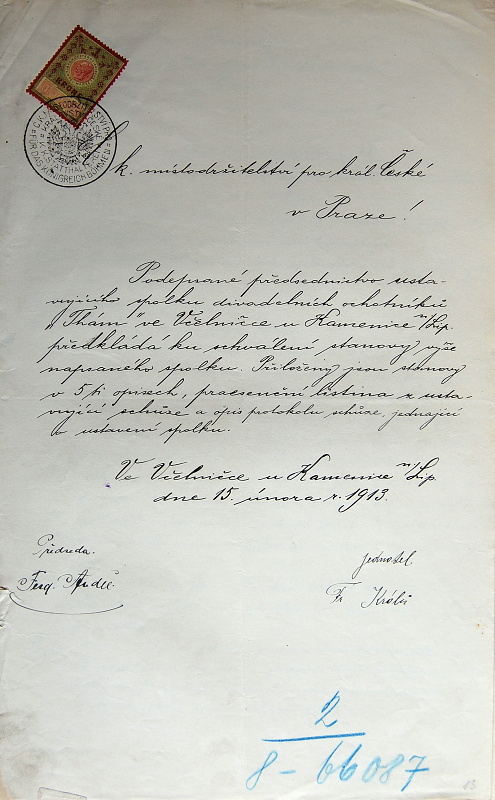 k. místodržitelství pro král. České
v Praze!
Podepsané předsednictvo usta-
vujícího spolku divadelních ochotníků
„Thám" ve Včelničce u Kamenice n/Lip.
předkládá ku schválení stanovy výše
napsaného spolku. Přiloženy jsou stanovy
v 5 ti opisech, praesenční listina z usta-
vující schůze a opis protokolu schůze, jednající
o ustavení spolku.
Ve Včelničce u Kamenice n/Lip.
dne 15. února r. 1913.
Předseda.
jednatel.
Ferd. Anděl
Fr
2
8 - 66087
FÜR DAS KÖNIGREICH BÖHMEN